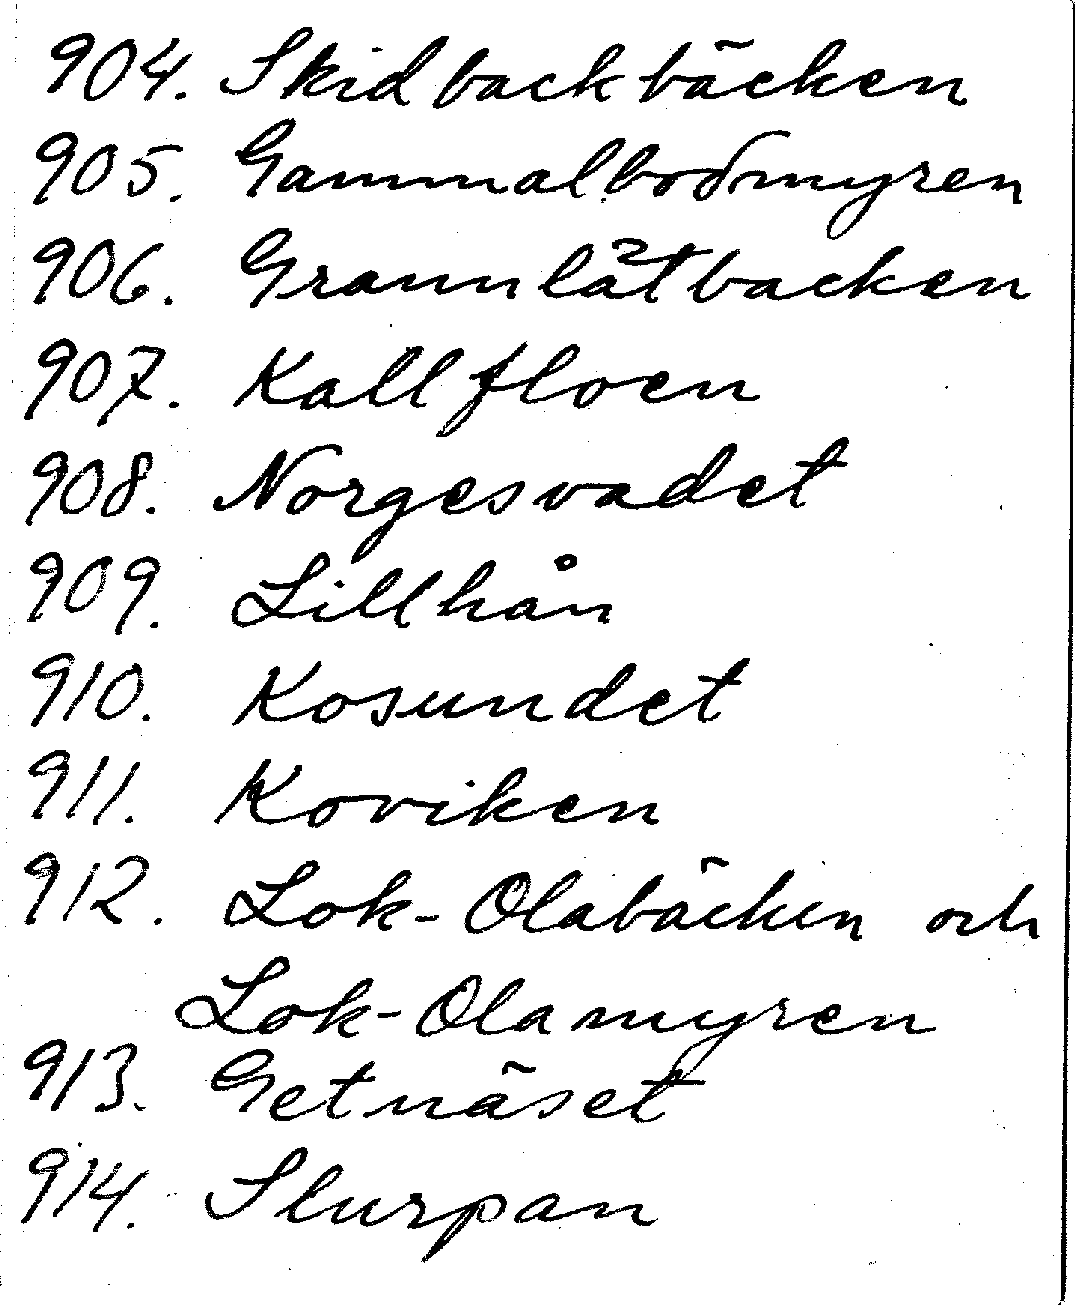 904. Skidbackbäcken
905. Gammalbodmyren
906. Grannlåtbacken
907. Kallfloen
908. Norgesvadet
909. Lillhån
910. Kosundet
911. Koviken
912. Lok-Olabäcken och
Lok-Olamyren
913. Getnäset
914. Slurpan